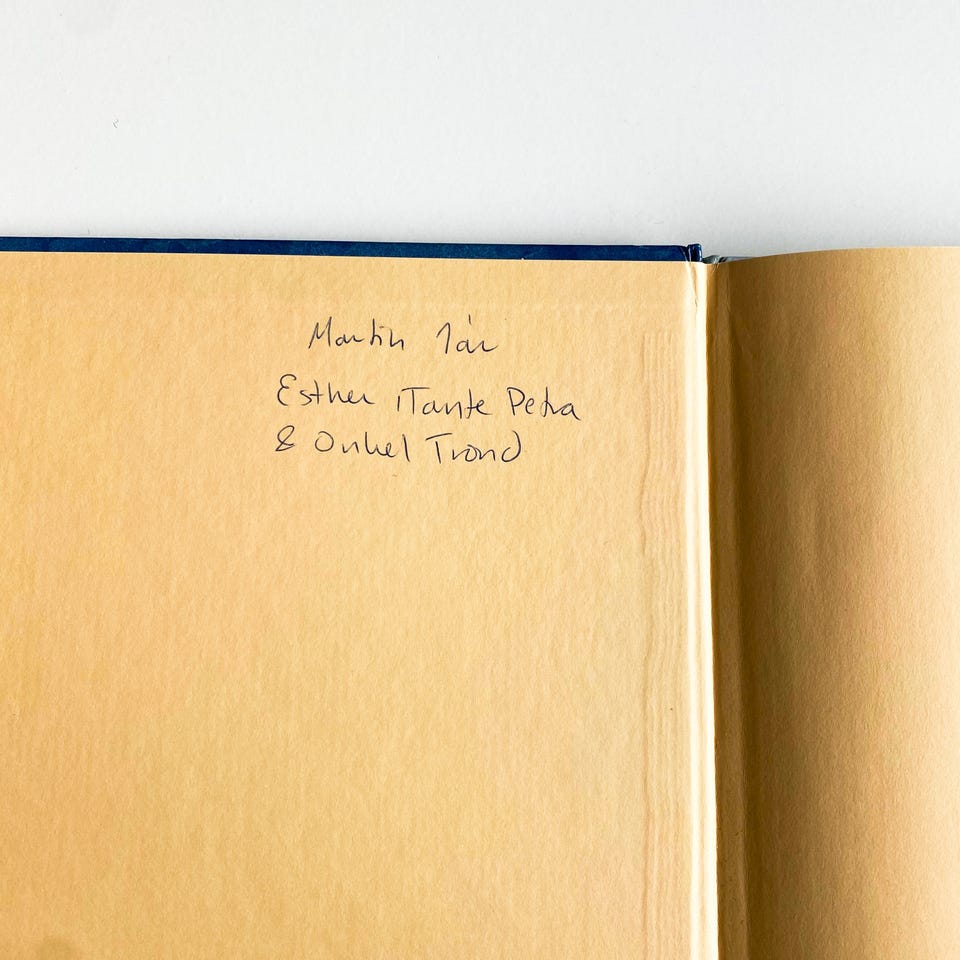 Martin 1år
Esther, Tante Petra
& Onkel Trond